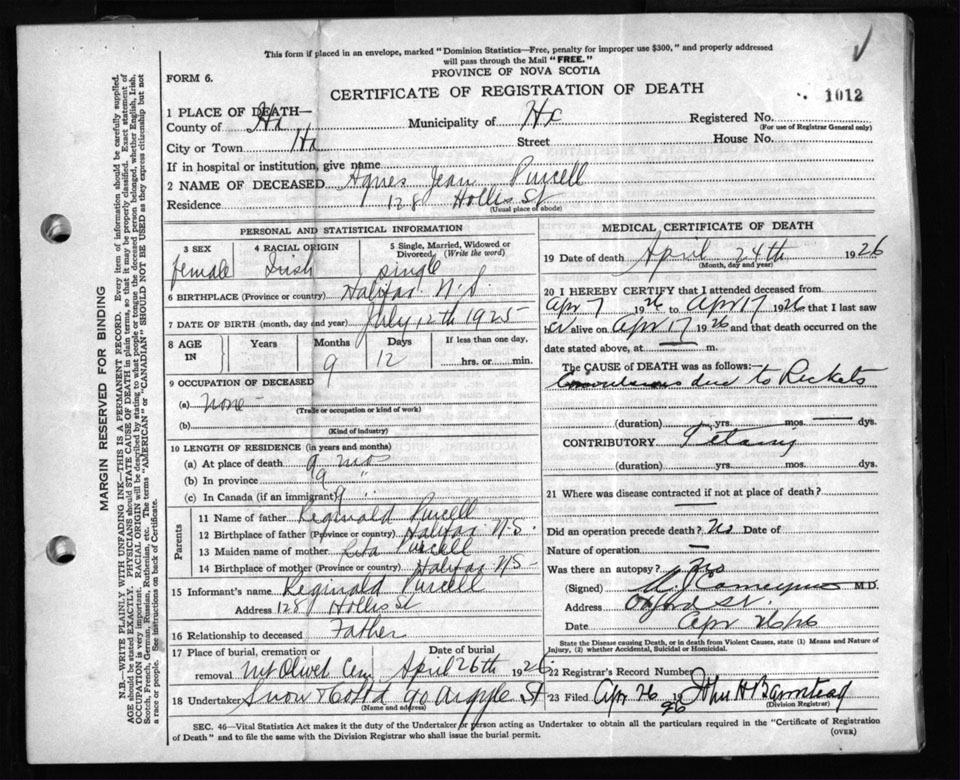 This form if placed in an envelope, marked "Dominion Statistics—Free, penalty for improper use $300," and properly addressed
will pass through the Mail "FREE."
FORM 6.
PROVINCE OF NOVA SCOTIA
CERTIFICATE OF REGISTRATION OF DEATH
1012
1 PLACE OF DEATH—
County of Hx Municipality of Hx Registered No.
(For use of Registrar General only)
City or Town Hx Street House No.
If in hospital or institution, give name
2 NAME OF DECEASED Agnes Jean Purcell
Residence 128 Hollis St
(Usual place of abode)
PERSONAL AND STATISTICAL INFORMATION
3 SEX 4 RACIAL ORIGIN 5 Single, Married, Widowed or
Divorced (Write the word)
female Irish single
6 BIRTHPLACE (Province or country) Halifax N.S.
7 DATE OF BIRTH (month, day and year) July 12th 1925
8 AGE IN Years Months Days If less than one day,
9 12 hrs. or min.
9 OCCUPATION OF DECEASED
(a) None
(Trade or occupation or kind of work)
(b)
(Kind of industry)
10 LENGTH OF RESIDENCE (in years and months)
(a) At place of death 9 mos
(b) In province 9 "
(c) In Canada (if an immigrant) 9 "
Parents
11 Name of father Reginald Purcell
12 Birthplace of father (Province or country) Halifax N.S.
13 Maiden name of mother Rita Purcell
14 Birthplace of mother (Province or country) Halifax NS
15 Informant's name Reginald Purcell
Address 128 Hollis St
16 Relationship to deceased Father
17 Place of burial, cremation or Date of burial
removal Mt Olivet Cem April 26th 1926
18 Undertaker Snow & Co Ltd 90 Argyle St
(Name and address)
MEDICAL CERTIFICATE OF DEATH
19 Date of death April 24th 1926
(Month, day and year)
20 I HEREBY CERTIFY that I attended deceased from
Apr 7 1926 to Apr 17 1926 that I last saw
her alive on Apr 17 1926 and that death occurred on the
date stated above, at — m.
The CAUSE of DEATH was as follows:—
Convulsions due to Rickets
(duration) yrs. mos. — dys.
CONTRIBUTORY Tetany
(duration) yrs. mos. dys.
21 Where was disease contracted if not at place of death?
—
Did an operation precede death? No Date of
Nature of operation —
Was there an autopsy? No
(Signed) M.D.
Address Oxford St
Date Apr 26/26
State the Disease causing Death, or in death from Violent Causes, state (1) Means and Nature of
Injury, (2) whether Accidental, Suicidal or Homicidal.
22 Registrar's Record Number
23 Filed Apr 26 1926 John H Barnstead
(Division Registrar)
SEC. 46—Vital Statistics Act makes it the duty of the Undertaker or person acting as Undertaker to obtain all the particulars required in the "Certificate of Registration
of Death" and to file the same with the Division Registrar who shall issue the burial permit.
(OVER)
MARGIN RESERVED FOR BINDING
N.B.—WRITE PLAINLY WITH UNFADING INK—THIS IS A PERMANENT RECORD. Every item of information should be carefully supplied.
AGE should be stated EXACTLY. PHYSICIANS should STATE CAUSE OF DEATH in plain terms, so that it may be properly classified. Exact statement of
OCCUPATION is very important. RACIAL ORIGIN will be described by stating to what people or tongue the deceased person belonged, whether English, Irish,
Scotch, French, German, Russian, Ruthenian, etc. The terms "AMERICAN" or "CANADIAN" SHOULD NOT BE USED as they express citizenship but not
a race or people. See instructions on back of Certificate.